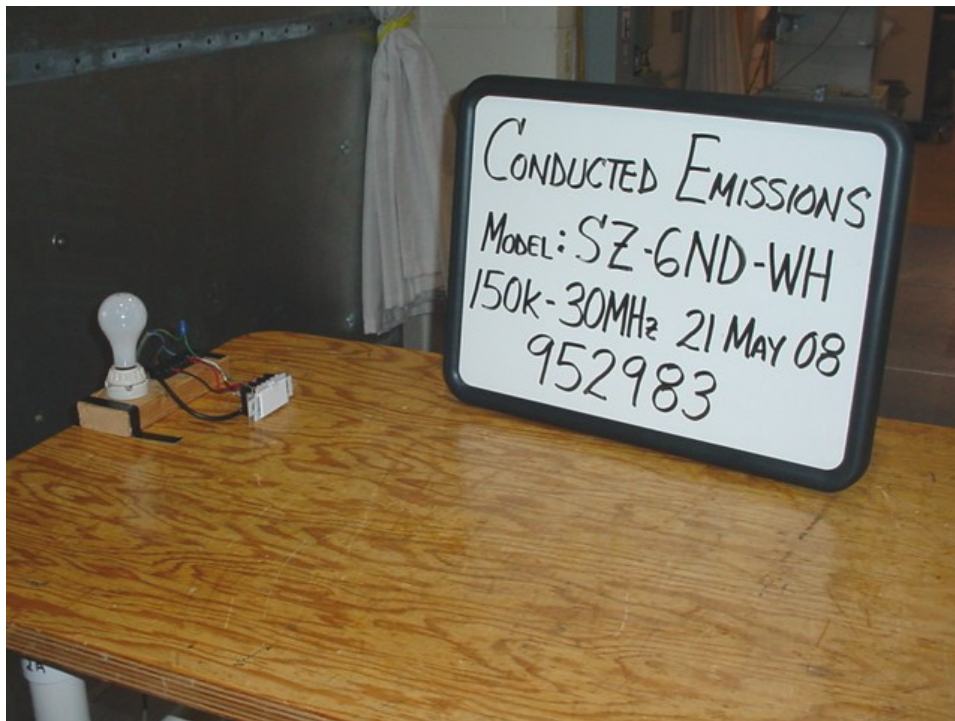 CONDUCTED EMISSIONS
MODEL: SZ-6ND-WH
150k-30MHz 21 MAY 08
952983
2A